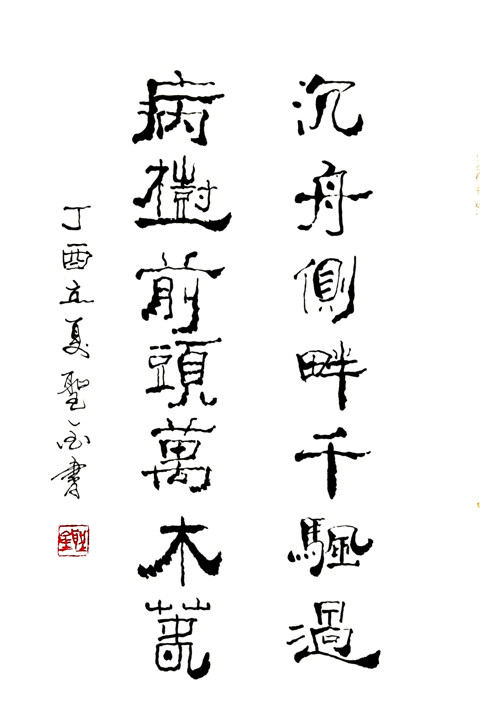 沉舟側畔千颿過
病樹前頭萬木萅
丁酉立夏聖金書